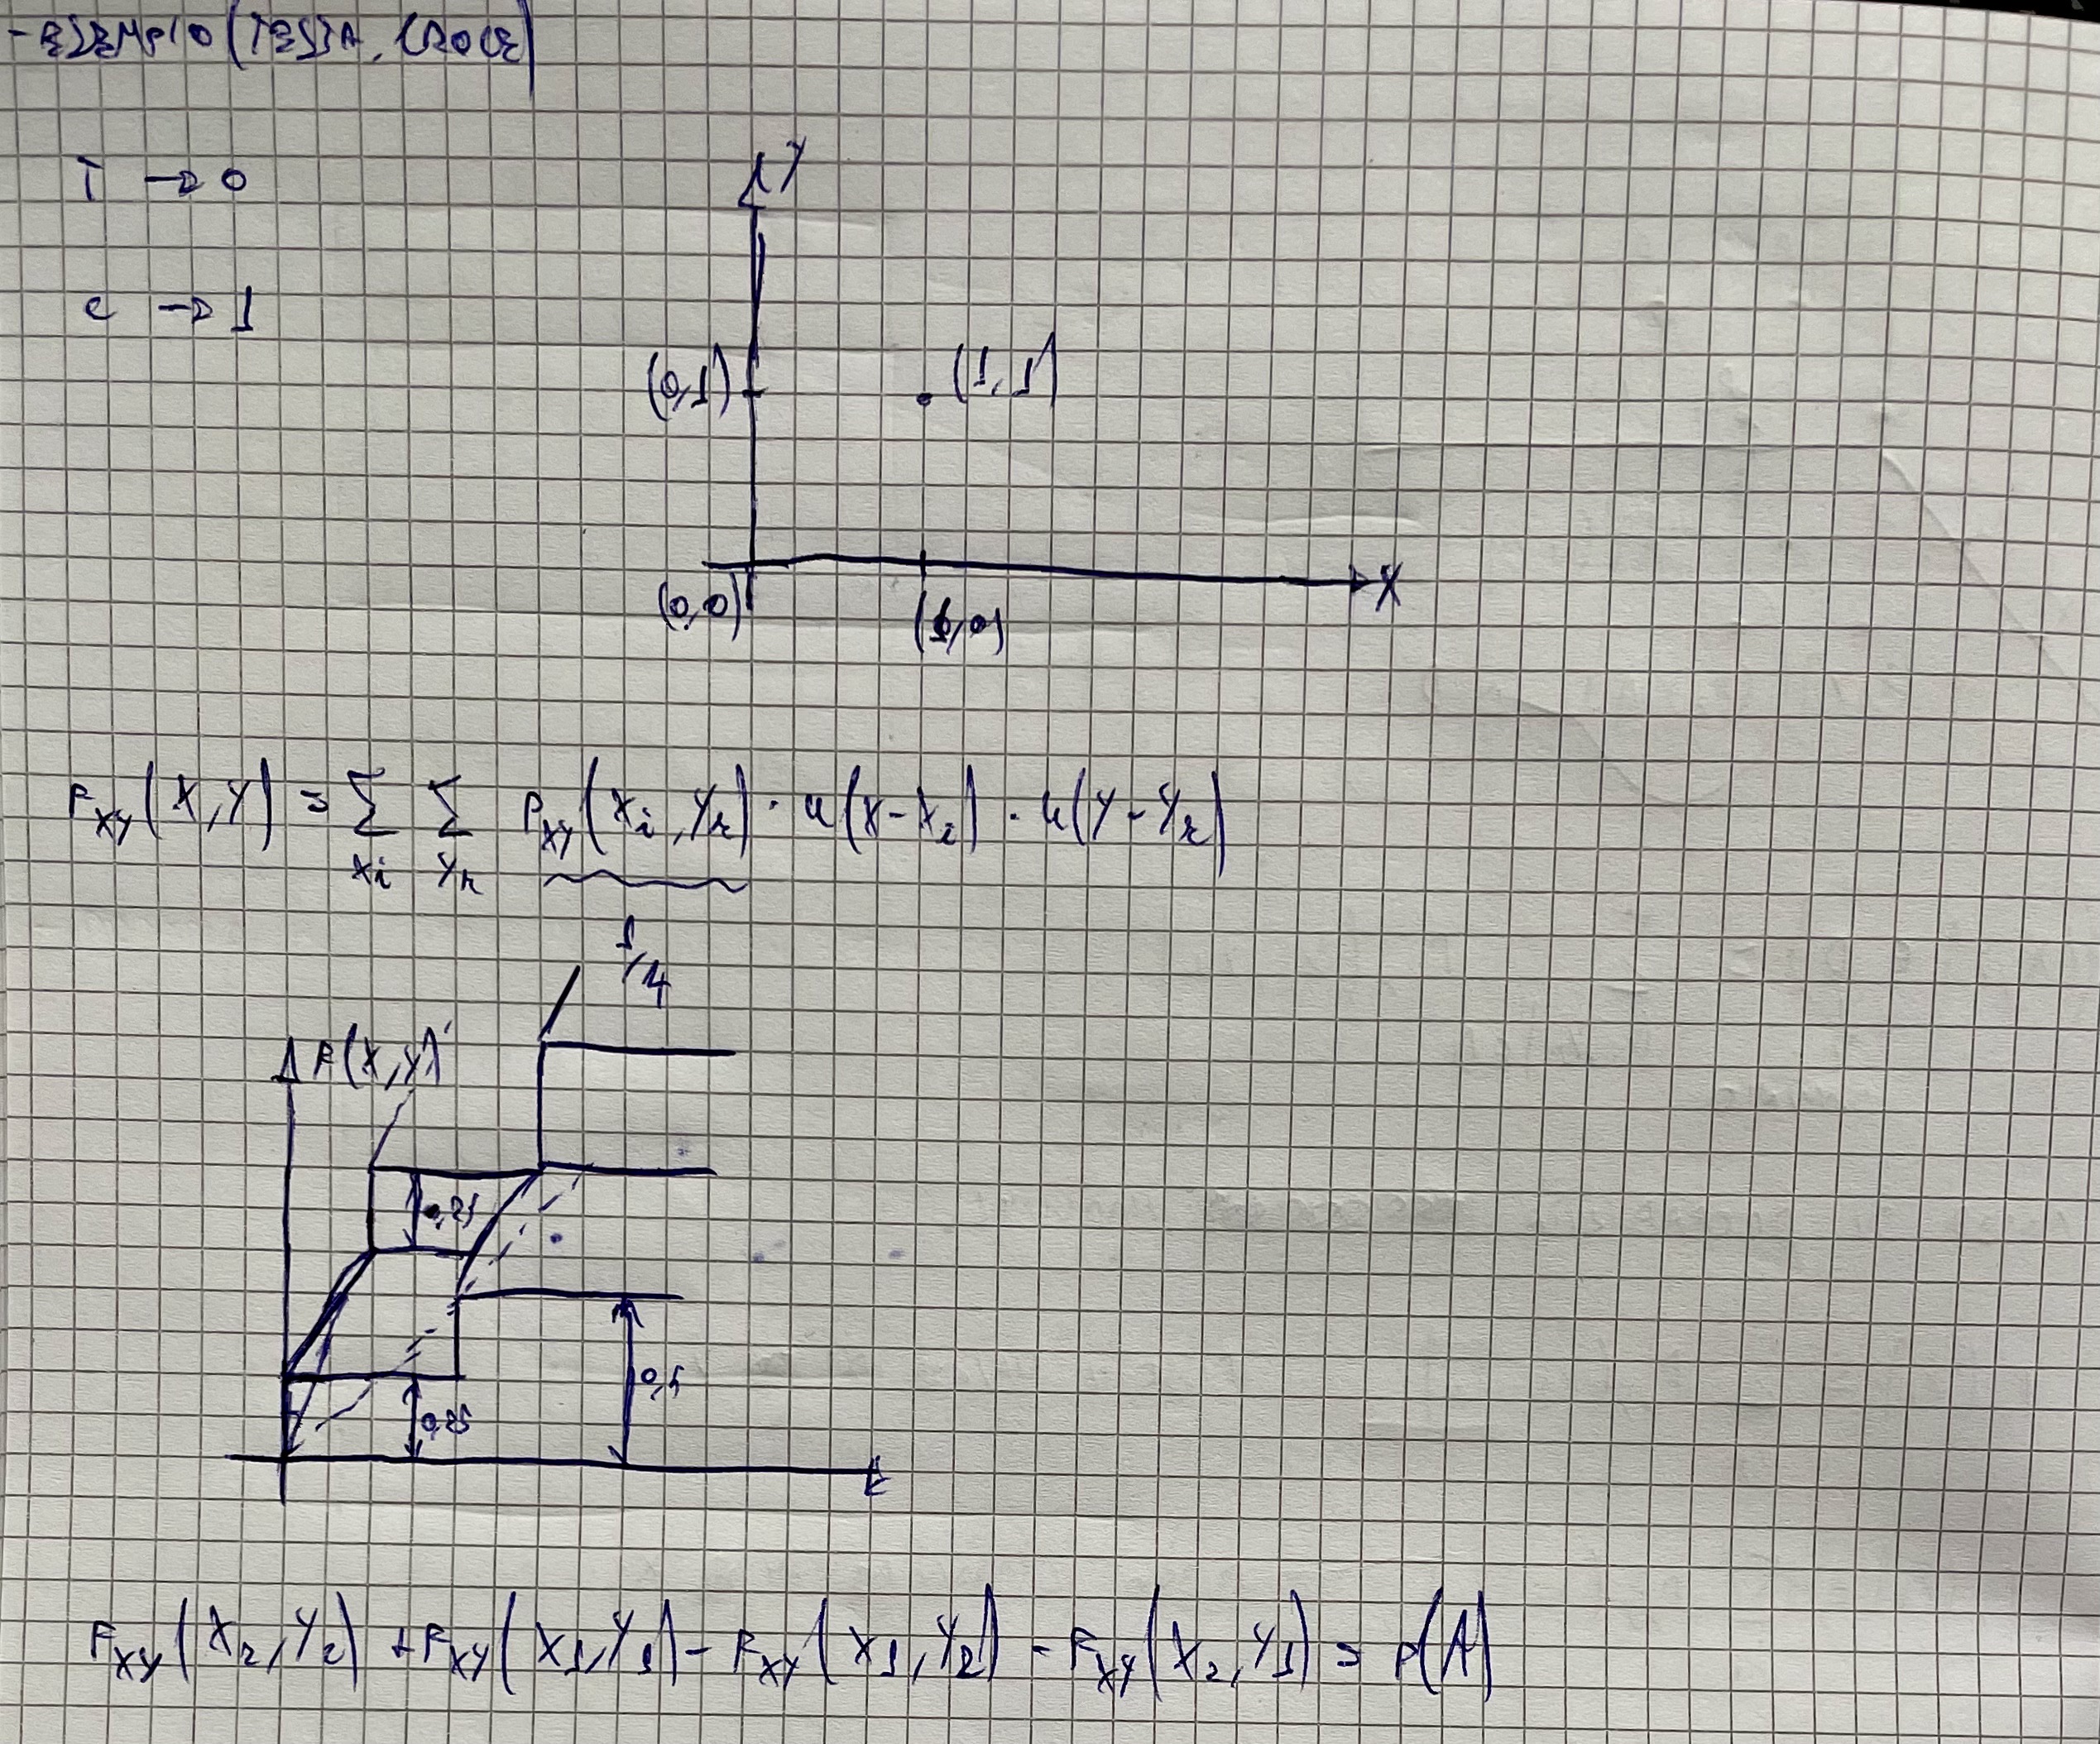 - ESEMPIO (TESTA, CROCE)
T → 0
C → 1
Y
(0,1) (1,1)
(0,0) (1,0) X
F_XY(X,Y) = Σ_Xi Σ_Yk P_XY(Xi,Yk) · u(X-Xi) · u(Y-Yk)
1/4
F(X,Y)
0,25
0,5
0,25
F_XY(X2,Y2) + F_XY(X1,Y1) - F_XY(X1,Y2) - F_XY(X2,Y1) = P(A)